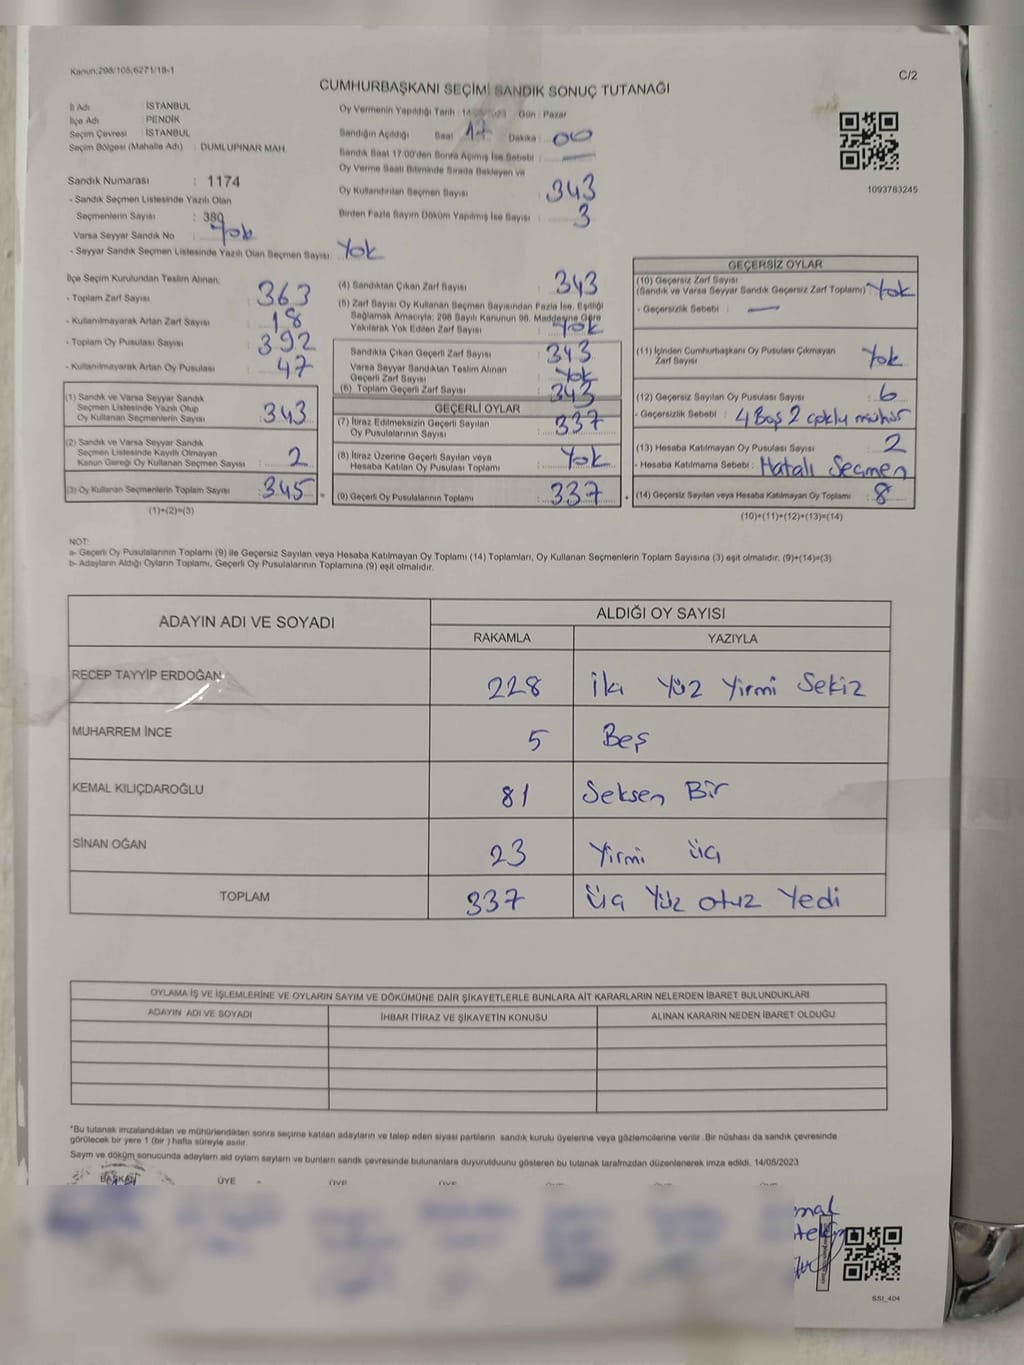 Kanun:298/105,6271/18-1
C/2
CUMHURBAŞKANI SEÇİMİ SANDIK SONUÇ TUTANAĞI
İl Adı : İSTANBUL
İlçe Adı : PENDİK
Seçim Çevresi : İSTANBUL
Seçim Bölgesi (Mahalle Adı) : DUMLUPINAR MAH.
Sandık Numarası : 1174
- Sandık Seçmen Listesinde Yazılı Olan
Seçmenlerin Sayısı : 380
Varsa Seyyar Sandık No : Yok
- Seyyar Sandık Seçmen Listesinde Yazılı Olan Seçmen Sayısı: Yok
Oy Vermenin Yapıldığı Tarih : 14/05/2023 Gün : Pazar
Sandığın Açıldığı Saat 17 Dakika : 00
Sandık Saat 17:00'den Sonra Açılmış İse Sebebi : —
Oy Verme Saati Bitiminde Sırada Bekleyen ve
Oy Kullandırılan Seçmen Sayısı : 343
Birden Fazla Sayım Döküm Yapılmış İse Sayısı : 3
1093783245
İlçe Seçim Kurulundan Teslim Alınan;
- Toplam Zarf Sayısı : 363
- Kullanılmayarak Artan Zarf Sayısı : 18
- Toplam Oy Pusulası Sayısı : 392
- Kullanılmayarak Artan Oy Pusulası : 47
(1) Sandık ve Varsa Seyyar Sandık
Seçmen Listesinde Yazılı Olup
Oy Kullanan Seçmenlerin Sayısı : 343
(2) Sandık ve Varsa Seyyar Sandık
Seçmen Listesinde Kayıtlı Olmayan
Kanun Gereği Oy Kullanan Seçmen Sayısı : 2
(3) Oy Kullanan Seçmenlerin Toplam Sayısı : 345 =
(1)+(2)=(3)
(4) Sandıktan Çıkan Zarf Sayısı : 343
(5) Zarf Sayısı Oy Kullanan Seçmen Sayısından Fazla İse, Eşitliği
Sağlamak Amacıyla; 298 Sayılı Kanunun 98. Maddesine Göre
Yakılarak Yok Edilen Zarf Sayısı : Yok
Sandıkta Çıkan Geçerli Zarf Sayısı : 343
Varsa Seyyar Sandıktan Teslim Alınan
Geçerli Zarf Sayısı : Yok
(6) Toplam Geçerli Zarf Sayısı : 343
GEÇERLİ OYLAR
(7) İtiraz Edilmeksizin Geçerli Sayılan
Oy Pusulalarının Sayısı : 337
(8) İtiraz Üzerine Geçerli Sayılan veya
Hesaba Katılan Oy Pusulası Toplamı : Yok
(9) Geçerli Oy Pusulalarının Toplamı : 337 +
GEÇERSİZ OYLAR
(10) Geçersiz Zarf Sayısı
(Sandık ve Varsa Seyyar Sandık Geçersiz Zarf Toplamı) : Yok
- Geçersizlik Sebebi : —
(11) İçinden Cumhurbaşkanı Oy Pusulası Çıkmayan
Zarf Sayısı : Yok
(12) Geçersiz Sayılan Oy Pusulası Sayısı : 6
- Geçersizlik Sebebi : 4 Boş 2 çoklu mühür
(13) Hesaba Katılmayan Oy Pusulası Sayısı : 2
- Hesaba Katılmama Sebebi : Hatalı Seçmen
(14) Geçersiz Sayılan veya Hesaba Katılmayan Oy Toplamı : 8
(10)+(11)+(12)+(13)=(14)
NOT:
a- Geçerli Oy Pusulalarının Toplamı (9) ile Geçersiz Sayılan veya Hesaba Katılmayan Oy Toplamı (14) Toplamları, Oy Kullanan Seçmenlerin Toplam Sayısına (3) eşit olmalıdır. (9)+(14)=(3)
b- Adayların Aldığı Oyların Toplamı, Geçerli Oy Pusulalarının Toplamına (9) eşit olmalıdır.
ADAYIN ADI VE SOYADI
ALDIĞI OY SAYISI
RAKAMLA YAZIYLA
RECEP TAYYİP ERDOĞAN 228 iki Yüz Yirmi Sekiz
MUHARREM İNCE 5 Beş
KEMAL KILIÇDAROĞLU 81 Seksen Bir
SİNAN OĞAN 23 Yirmi üç
TOPLAM 337 üç Yüz otuz Yedi
OYLAMA İŞ VE İŞLEMLERİNE VE OYLARIN SAYIM VE DÖKÜMÜNE DAİR ŞİKAYETLERLE BUNLARA AİT KARARLARIN NELERDEN İBARET BULUNDUKLARI
ADAYIN ADI VE SOYADI İHBAR İTİRAZ VE ŞİKAYETİN KONUSU ALINAN KARARIN NEDEN İBARET OLDUĞU
*Bu tutanak imzalandıktan ve mühürlendikten sonra seçime katılan adayların ve talep eden siyasi partilerin sandık kurulu üyelerine veya gözlemcilerine verilir .Bir nüshası da sandık çevresinde
görülecek bir yere 1 (bir ) hafta süreyle asılır.
Sayım ve döküm sonucunda adayların aldı oyların sayıları ve bunların sandık çevresinde bulunanlara duyurulduunu gösteren bu tutanak tarafımzdan düzenlenerek imza edildi. 14/05/2023
BAŞKAN ÜYE ÜYE ÜYE
SSI_404